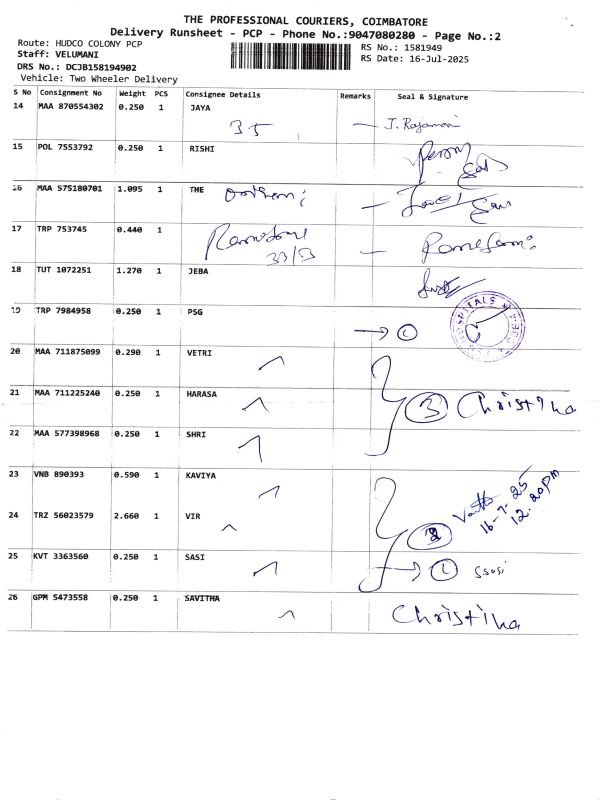 THE PROFESSIONAL COURIERS, COIMBATORE
Delivery Runsheet - PCP - Phone No.:9047080280 - Page No.:2
Route: HUDCO COLONY PCP
RS No.: 1581949
Staff: VELUMANI
RS Date: 16-Jul-2025
DRS No.: DCJB158194902
Vehicle: Two Wheeler Delivery
S No Consignment No Weight PCS Consignee Details Remarks Seal & Signature
14 MAA 870554302 0.250 1 JAYA
35 J. Rajamani
15 POL 7553792 0.250 1 RISHI
16 MAA 575180701 1.095 1 THE
17 TRP 753745 0.440 1
33/53
18 TUT 1072251 1.270 1 JEBA
19 TRP 7984958 0.250 1 PSG
HOSPITALS
20 MAA 711875099 0.290 1 VETRI
21 MAA 711225240 0.250 1 HARASA
3 Christina
22 MAA 577398968 0.250 1 SHRI
23 VNB 890393 0.590 1 KAVIYA
16-7-25
12.20pm
24 TRZ 56023579 2.660 1 VIR
2
25 KVT 3363560 0.250 1 SASI
26 GPM 5473558 0.250 1 SAVITHA
Christina